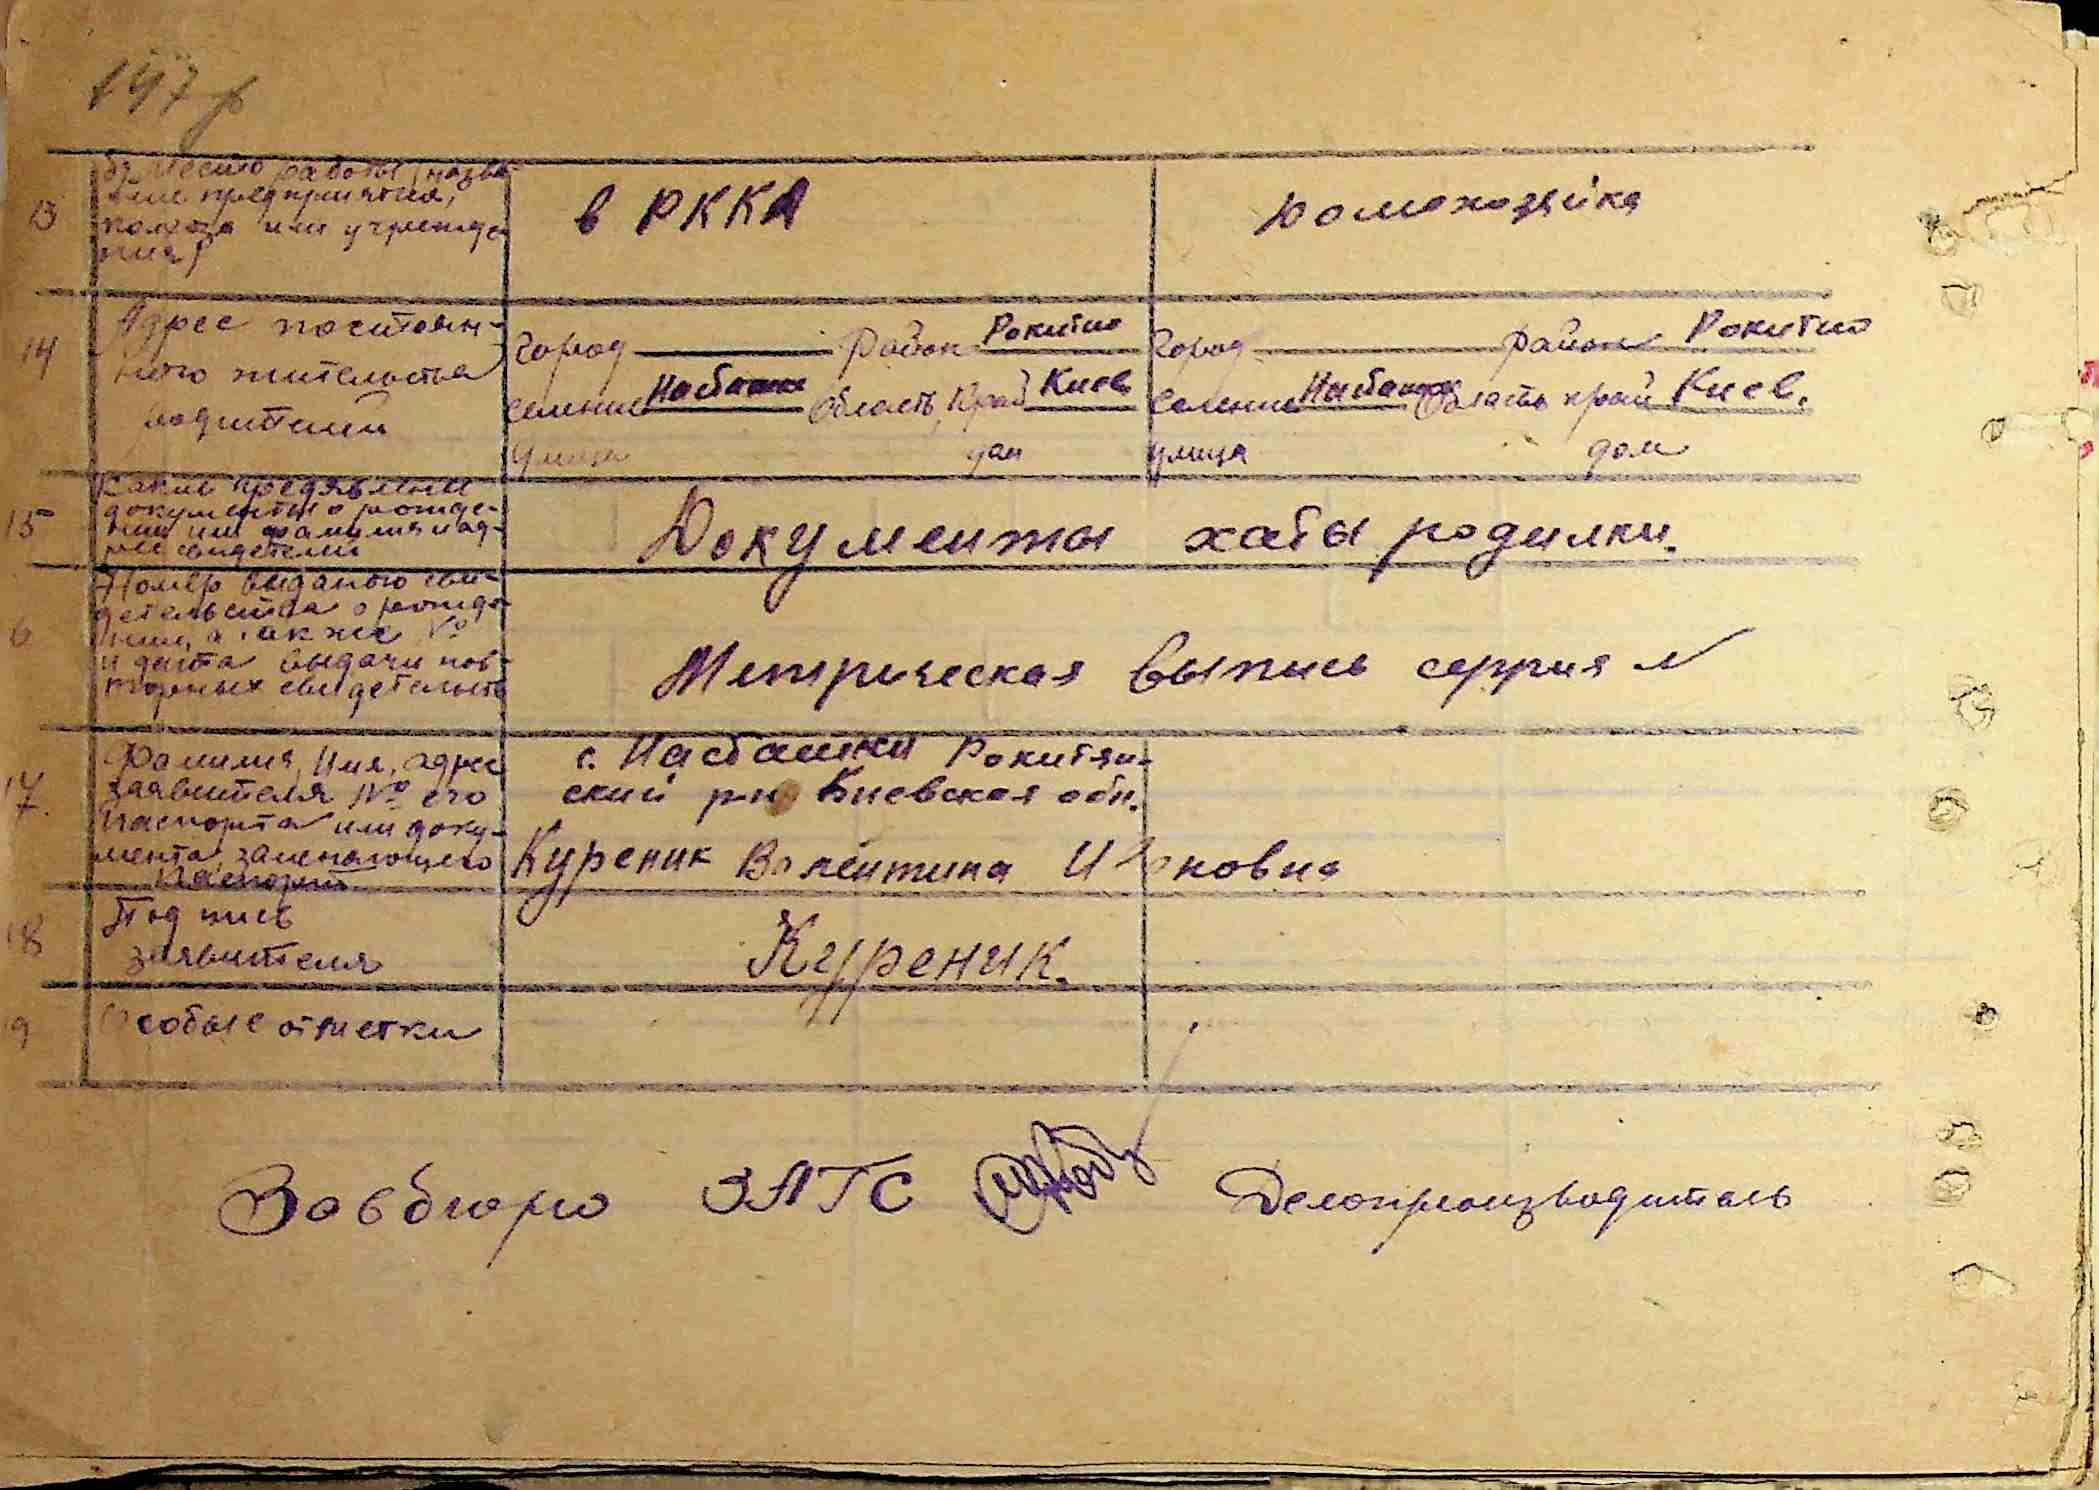 13
б) Место работы (назва-
ние предприятия,
колхоза или учрежде-
ния)
в РККА
домохозяйка
14
Адрес постоян-
ного жительства
родителей
Город Район Рокитно
селение Насташк Область, Край Киев
улица дом
Город район Рокитно
селение Насташк область край Киев.
улица дом
15
Какие предявлены
документы о рожде-
нии или фамилия и ад-
рес свидетелей
Документы хаты родилки.
6
Номер выданого сви-
детельства о рожде-
нии, а также №
и дата выдачи пов-
торных свидетельств
Метрическая выпись серрия №
17.
Фамилия, Имя, адрес
заявителя № его
Паспорта или доку-
мента, заменяющего
Паспорт
с. Насташки Рокитян-
ский р-н Киевская обл.
Куреник Валентина Ивановна
18
Подпись
заявителя
Куреник.
9
Особые отметки
Завбюро ЗАГС Делопроизводитель